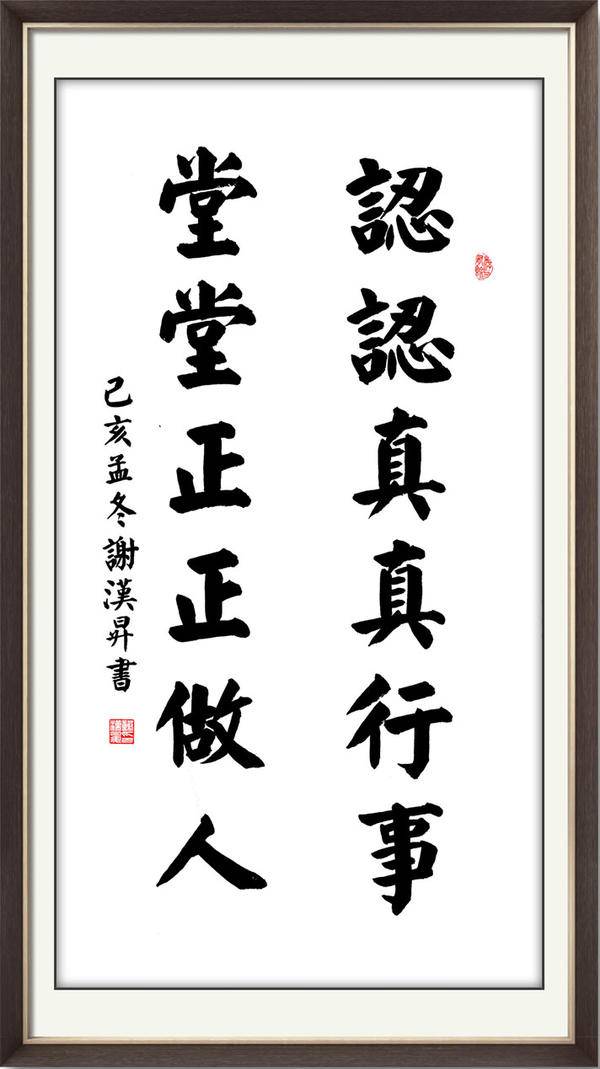 認認真真行事
堂堂正正做人
己亥孟冬謝漢昇書